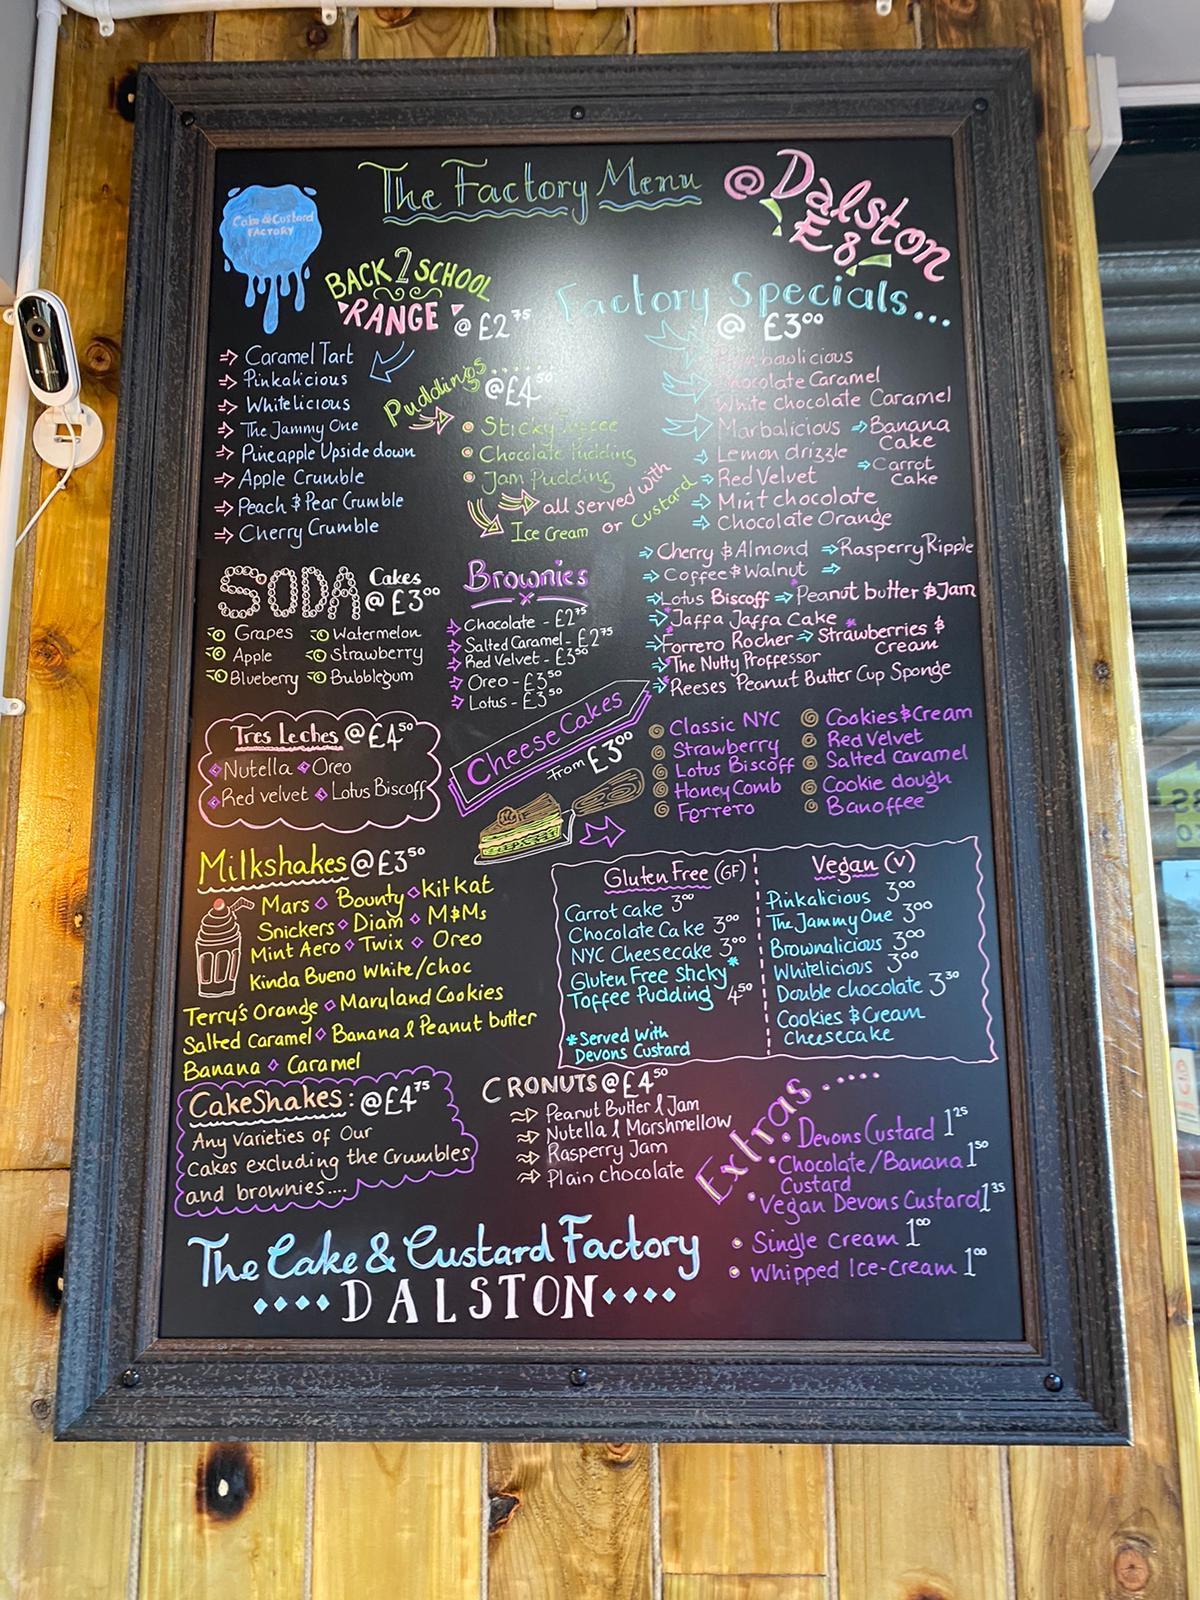 The Factory Menu
@ Dalston
E8
Cake & Custard
FACTORY
BACK 2 SCHOOL
RANGE @ £2 75
Caramel Tart
Pinkalicious
Whitelicious
The Jammy One
Pineapple Upside down
Apple Crumble
Peach & Pear Crumble
Cherry Crumble
Puddings
@ £4 50
Sticky Toffee
Chocolate Pudding
Jam Pudding
all served with
Ice Cream or Custard
Factory Specials...
@ £3 00
Rainbowlicious
Chocolate Caramel
White chocolate Caramel
Marbalicious
Banana
Cake
Lemon drizzle
Carrot
Cake
Red Velvet
Mint chocolate
Chocolate Orange
Cherry & Almond
Rasperry Ripple
Coffee & Walnut
Lotus Biscoff
Peanut butter & Jam
Jaffa Jaffa Cake
Forrero Rocher
Strawberries &
Cream
The Nutty Proffessor
Reeses Peanut Butter Cup Sponge
SODA Cakes
@ £3 00
Grapes
Watermelon
Apple
Strawberry
Blueberry
Bubblegum
Brownies
Chocolate - £2 75
Salted Caramel - £2 75
Red Velvet - £3 50
Oreo - £3 50
Lotus - £3 50
Tres Leches @ £4 50
Nutella Oreo
Red velvet Lotus Biscoff
CheeseCakes
From £3 00
Classic NYC
Strawberry
Lotus Biscoff
Honey Comb
Ferrero
Cookies & Cream
Red Velvet
Salted Caramel
Cookie dough
Banoffee
Milkshakes @ £3 50
Mars Bounty Kit Kat
Snickers Diam M&Ms
Mint Aero Twix Oreo
Kinda Bueno White/choc
Terry's Orange Maryland Cookies
Salted Caramel Banana & Peanut butter
Banana Caramel
Gluten Free (GF)
Carrot cake 3 00
Chocolate Cake 3 00
NYC Cheesecake 3 00
Gluten Free Sticky*
Toffee Pudding 4 50
*Served With
Devons Custard
Vegan (V)
Pinkalicious 3 00
The Jammy One 3 00
Brownalicious 3 00
Whitelicious 3 00
Double chocolate 3 30
Cookies & Cream
Cheesecake
CakeShakes: @ £4 75
Any Varieties of Our
Cakes excluding the Crumbles
and brownies....
CRONUTS @ £4 50
Peanut Butter & Jam
Nutella & Marshmellow
Rasperry Jam
Plain chocolate
Extras.....
Devons Custard 1 25
Chocolate/Banana 1 50
Custard
Vegan Devons Custard 1 35
Single cream 1 00
Whipped Ice-cream 1 00
The Cake & Custard Factory
DALSTON